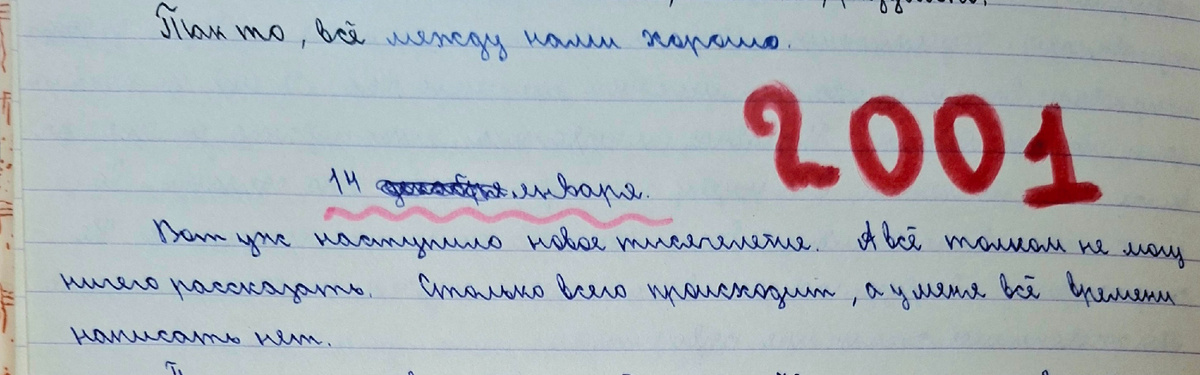 Так то, всё между нами хорошо.
2001
14 декабря января.
Вот уж наступило новое тисячелетие. А всё толком не могу
ничего рассказать. Столько всего происходит, а у меня всё времени
написать нет.